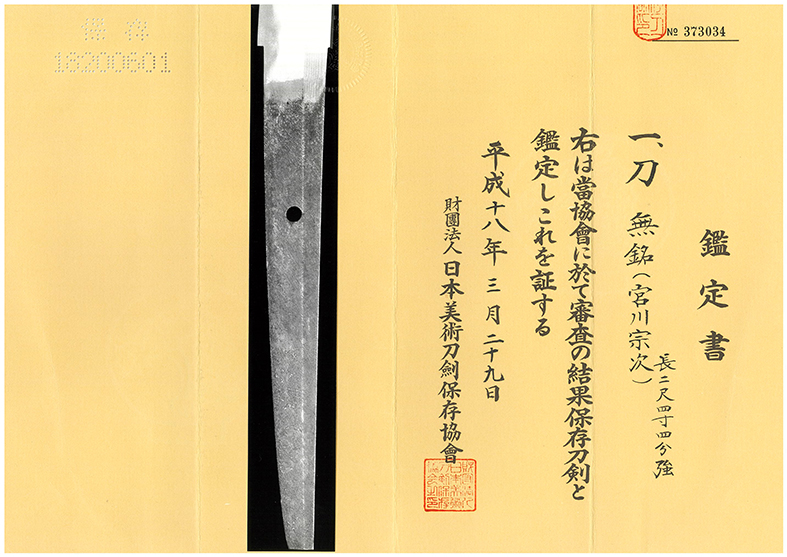 保存
18200601
№ 373034
鑑定書
一、刀 無銘(宮川宗次)
長二尺四寸四分強
右は當協會に於て審査の結果保存刀剣と
鑑定しこれを証する
平成十八年三月二十九日
財團法人日本美術刀劍保存協會